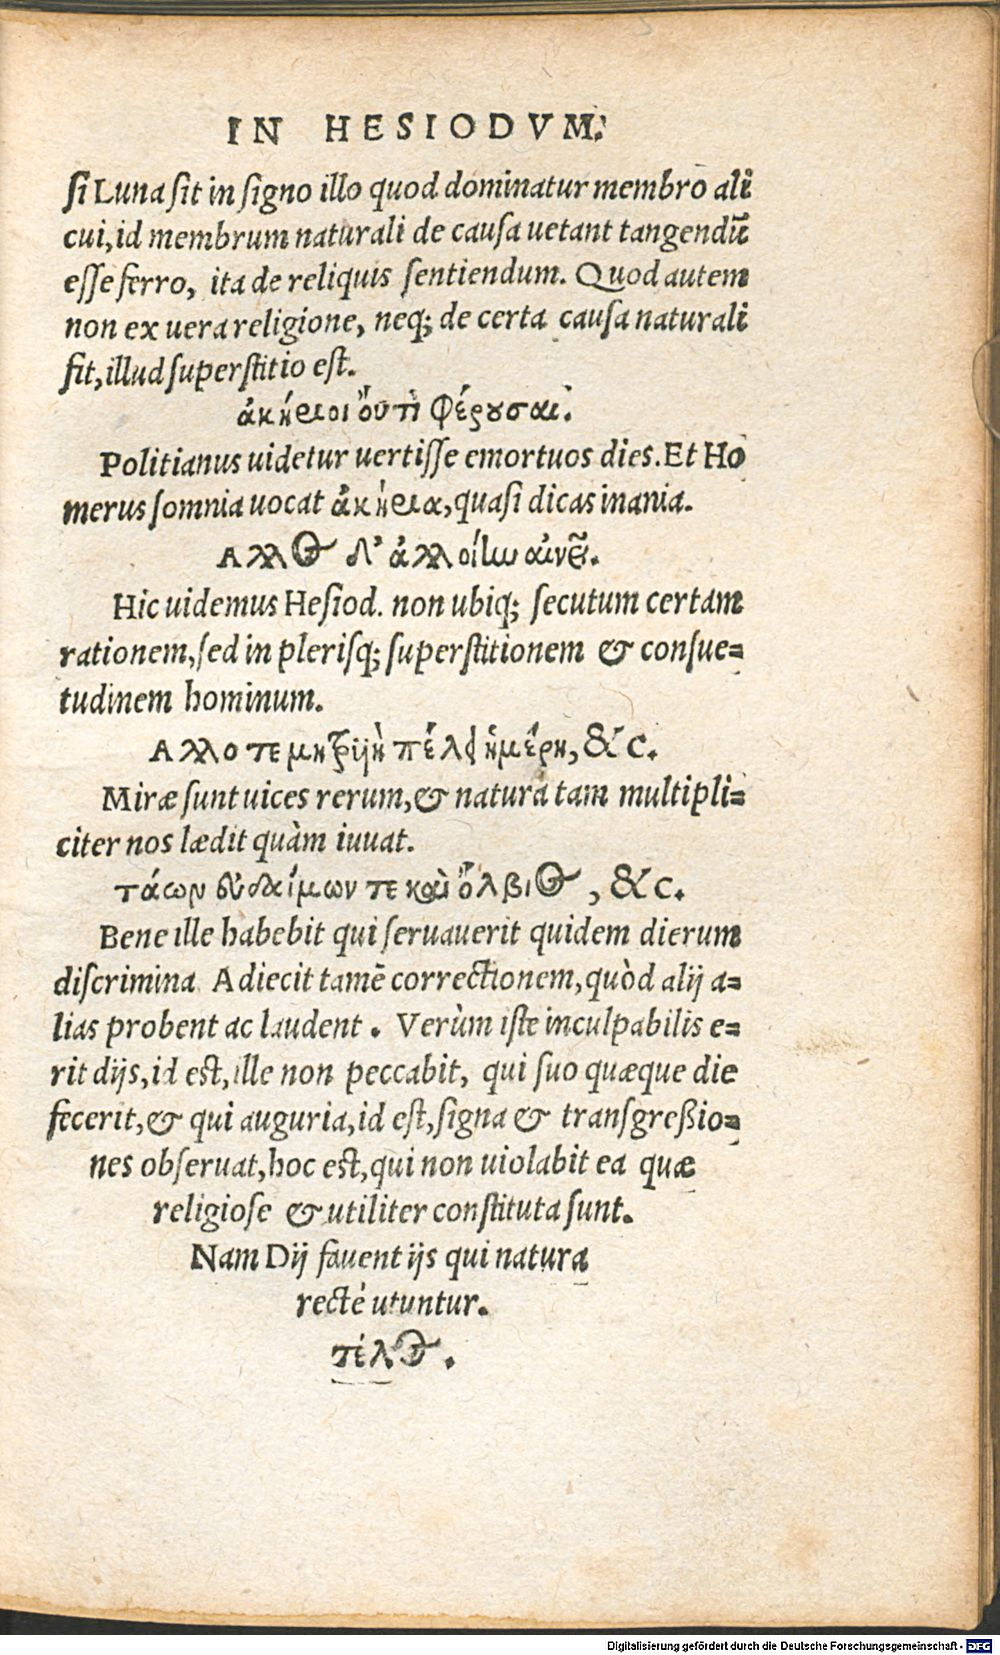 IN HESIODVM.
si Luna sit in signo illo quod dominatur membro ali
cui, id membrum naturali de causa uetant tangendũ
esse ferro, ita de reliquis sentiendum. Quod autem
non ex uera religione, neq; de certa causa naturali
fit, illud superstitio est.
ἀκήριοι οὔτι φέρουσαι.
Politianus uidetur uertisse emortuos dies. Et Ho
merus somnia uocat ἀκήρια, quasi dicas inania.
Αλλος δ' ἀλλοίίω αἰνεῖ.
Hic uidemus Hesiod. non ubiq; secutum certam
rationem, sed in plerisq; superstitionem & consue-
tudinem hominum.
Αλλοτε μητρυιὴ πέλει ἡμέρη, &c.
Miræ sunt uices rerum, & natura tam multipli-
citer nos lædit quàm iuuat.
τάων εὐδαίμων τε καὶ ὄλβιος, &c.
Bene ille habebit qui seruauerit quidem dierum
discrimina Adiecit tamẽ correctionem, quòd alij a-
lias probent ac laudent. Verùm iste inculpabilis e-
rit dijs, id est, ille non peccabit, qui suo quæque die
fecerit, & qui auguria, id est, signa & transgreßio-
nes obseruat, hoc est, qui non uiolabit ea quæ
religiose & utiliter constituta sunt.
Nam Dij fauent ijs qui natura
recté utuntur.
τέλος.
Digitalisierung gefördert durch die Deutsche Forschungsgemeinschaft - DFG